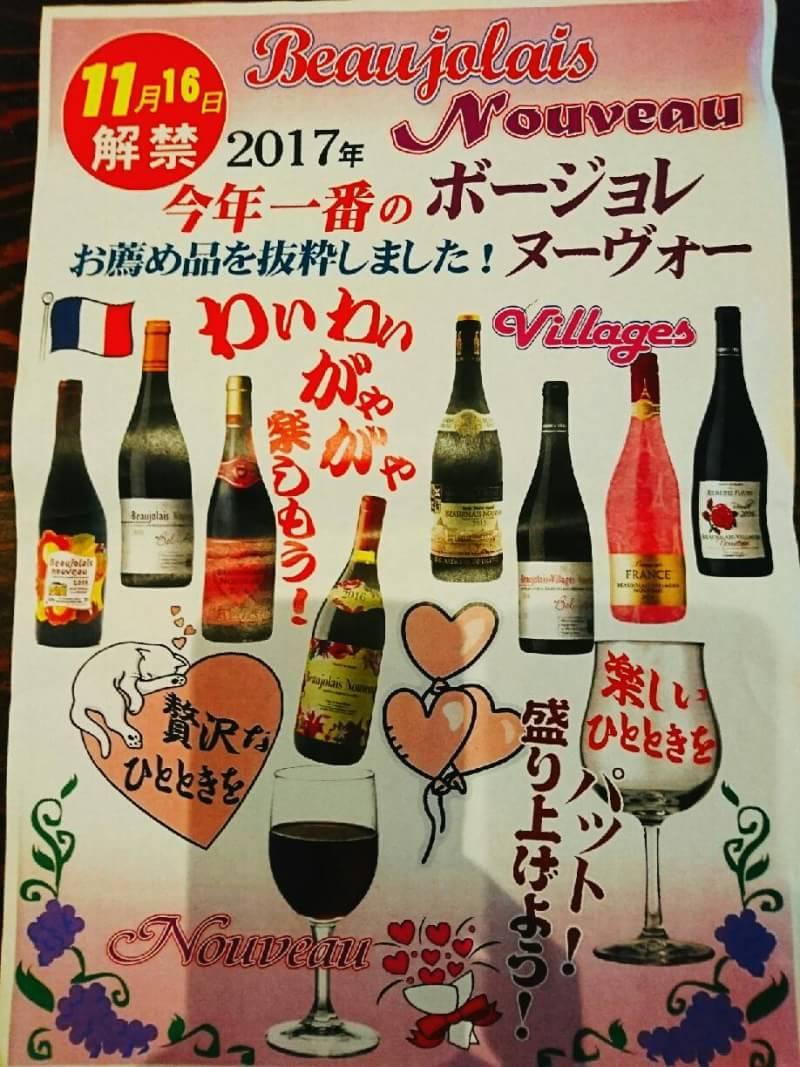 11月16日
解禁
Beaujolais
Nouveau
2017年
今年一番の
ボージョレ
ヌーヴォー
お薦め品を抜粋しました!
わいわい
がやがや
楽しもう!
Villages
Beaujolais
nouveau
Beaujolais Nouveau
2016
Beaujolais Nouveau
BEAUJOLAIS NOUVEAU
Beaujolais-Villages Nouveau
FRANCE
BEAUJOLAIS-VILLAGES
贅沢な
ひとときを
楽しい
ひとときを
パット!
盛り上げよう!
Nouveau